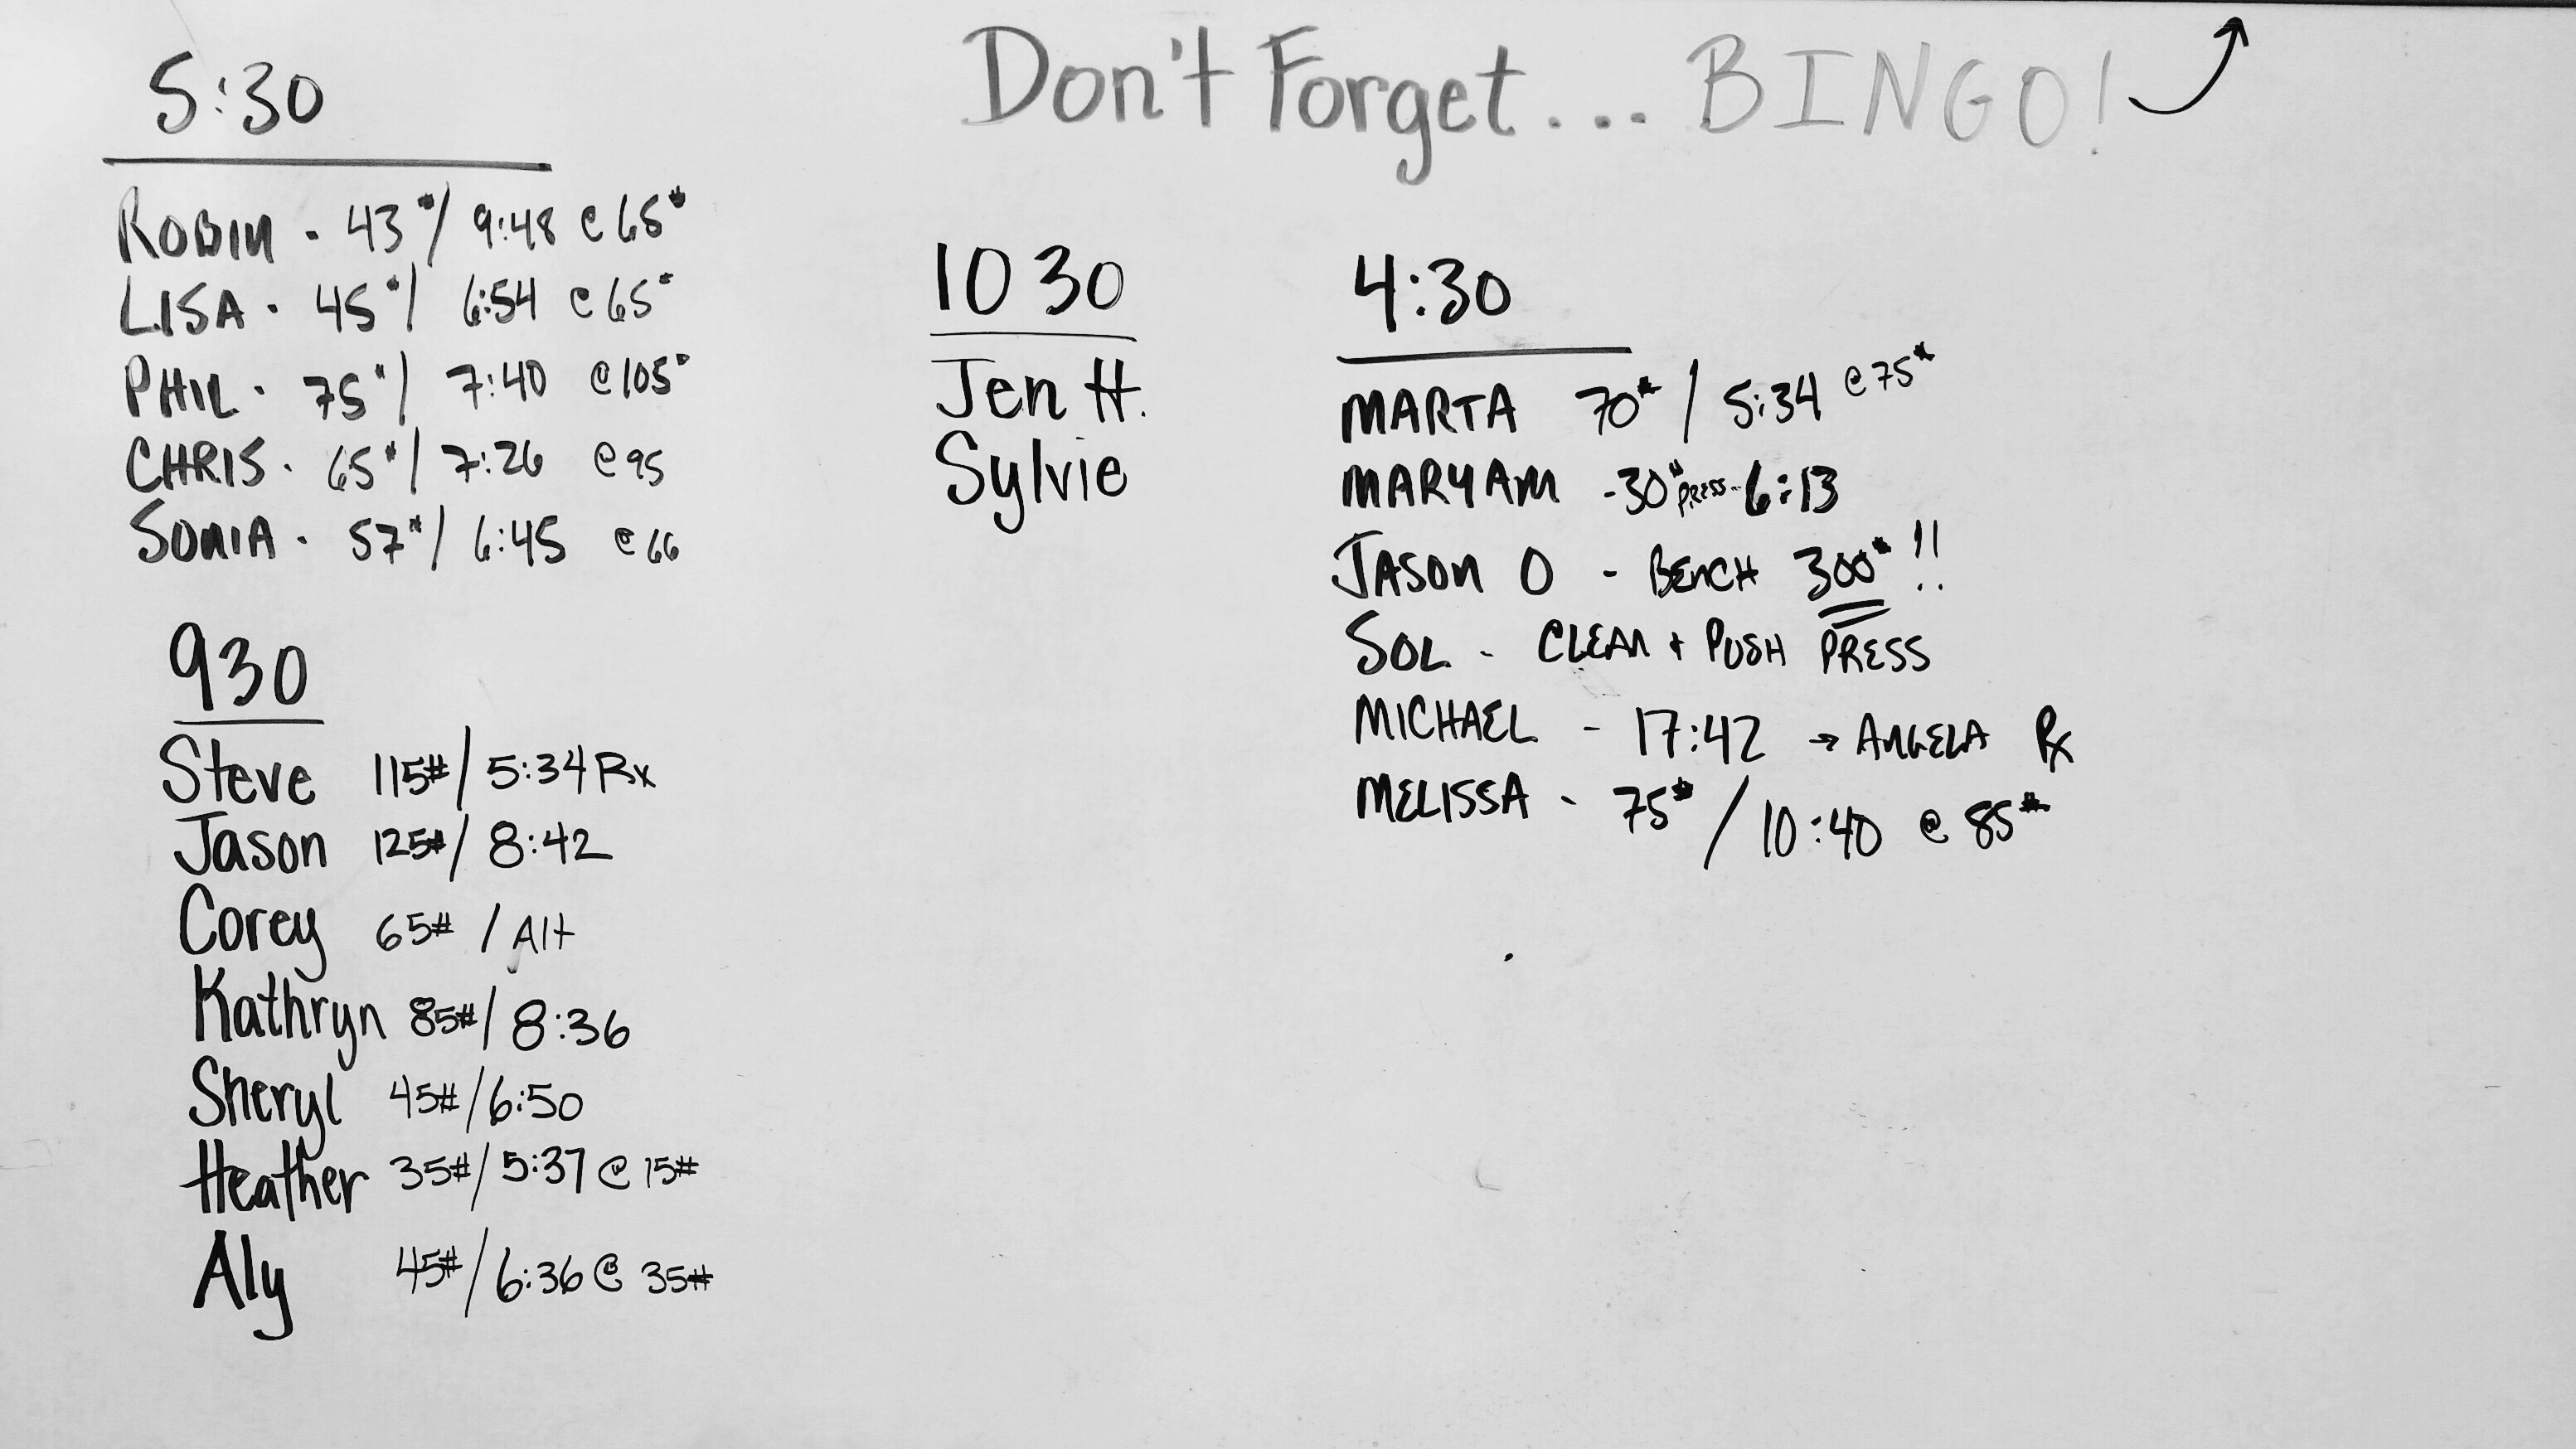 Don't Forget... BINGO!
5:30
ROBIN - 43# / 9:48 @ 65#
LISA - 45# / 6:54 @ 65#
PHIL - 75# / 7:40 @ 105#
CHRIS - 65# / 7:26 @ 95
SONIA - 57# / 6:45 @ 66
930
Steve 115# / 5:34 Rx
Jason 125# / 8:42
Corey 65# / Alt
Kathryn 85# / 8:36
Sheryl 45# / 6:50
Heather 35# / 5:37 @ 15#
Aly 45# / 6:36 @ 35#
10 30
Jen H.
Sylvie
4:30
MARTA 70# / 5:34 @ 75#
MARYAM - 30# PRESS - 6:13
JASON O - BENCH 300# !!
SOL - CLEAN + PUSH PRESS
MICHAEL - 17:42 → ANGELA Rx
MELISSA - 75# / 10:40 @ 85#